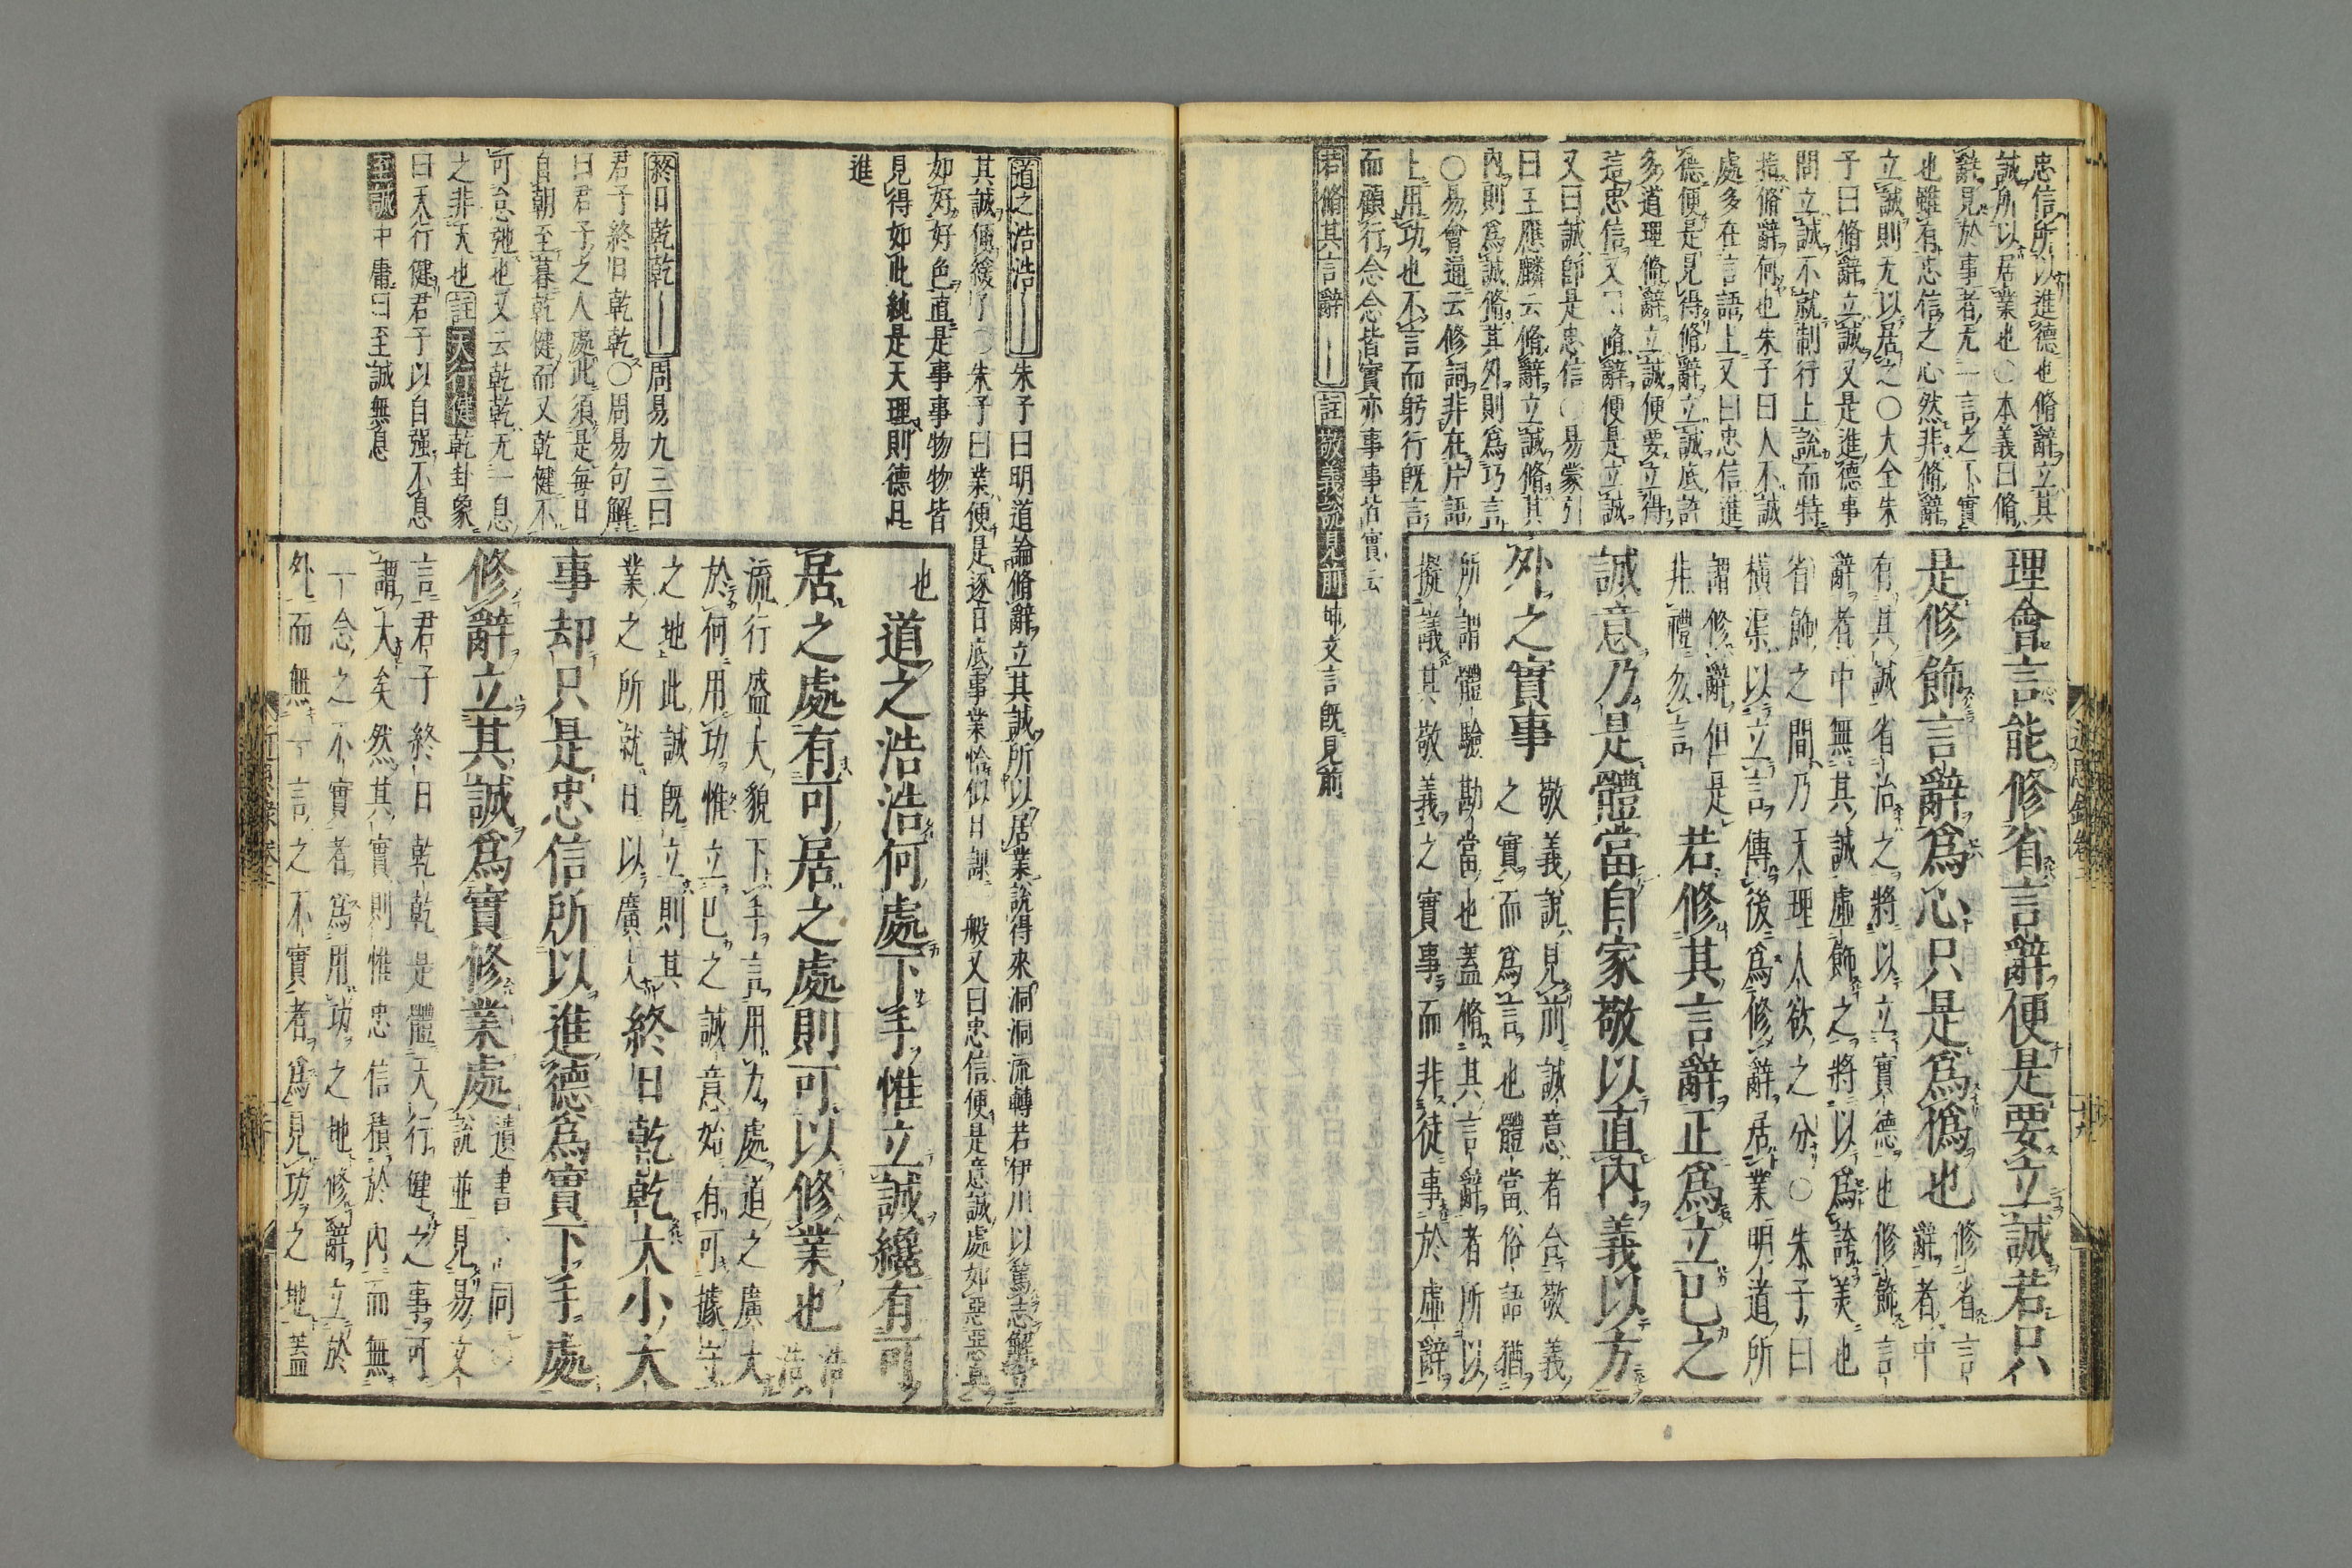 忠信所以進德也脩辭立其
誠所以居業也○本義曰脩
辭見於事者无一言之不實
也雖有忠信之心然非脩辭
立誠則无以居之○大全朱
子曰脩辭立誠又是進德事
問立誠不就制行上說而特
指脩辭何也朱子曰人不誠
處多在言語上又曰忠信進
德便是見得脩辭立誠底許
多道理脩辭立誠便要立得
這忠信又曰脩辭便是立誠
又曰誠即是忠信○易蒙引
曰王應麟云脩辭立誠脩其
內則為誠脩其外則為巧言
○易會通云修詞非在片語
上用功也不言而躬行既言
而顧行念念皆實亦事事皆實云
若脩其言辭 註敬義說見前 坤文言既見前
理會言能修省言辭便是要立誠若只
是修飾言辭爲心只是爲僞也
修省言辭者中
有其誠省治之將以立實德也修飾言
辭者中無其誠虛飾之將以爲誇美也
省飾之間乃天理人欲之分○朱子曰
橫渠以立言傳後爲修辭居業明道所
謂修辭但是
非禮勿言
若修其言辭正爲立己之
誠意乃是體當自家敬以直內義以方
外之實事
敬義說見前誠意者合敬義
之實而爲言也體當俗語猶
所謂體驗勘當也蓋脩其言辭者所以
擬議其敬義之實事而非徒事於虛辭
近思錄卷二
十九
道之浩浩 朱子曰明道論脩辭立其誠所以居業說得來洞洞流轉若伊川以篤志解立
其誠便緩了○朱子曰業便是逐日底事業恰似日課一般又曰忠信便是意誠處如惡惡臭
如好好色直是事事物物皆
見得如此純是天理則德日
進
終日乾乾 周易九三曰
君子終日乾乾○周易句解
曰君子之人處此須是每日
自朝至暮乾健而又乾健不
可怠弛也又云乾乾无一息
之非天也 註 天行健 乾卦象
曰天行健君子以自强不息
至誠 中庸曰至誠無息
也
道之浩浩何處下手惟立誠纔有可
居之處有可居之處則可以修業也
浩浩
流行盛大貌下手言用力處道之廣大
於何用功惟立己之誠意始有可據守
之地此誠既立則其
業之所就日以廣大
終日乾乾大小大
事却只是忠信所以進德爲實下手處
修辭立其誠爲實修業處
遺書下同○
說並見易文
言君子終日乾乾是體天行健之事可
謂大矣然其實則惟忠信積於內而無
一念之不實者爲用功之地修辭立於
外而無一言之不實者爲見功之地蓋
近思錄卷二